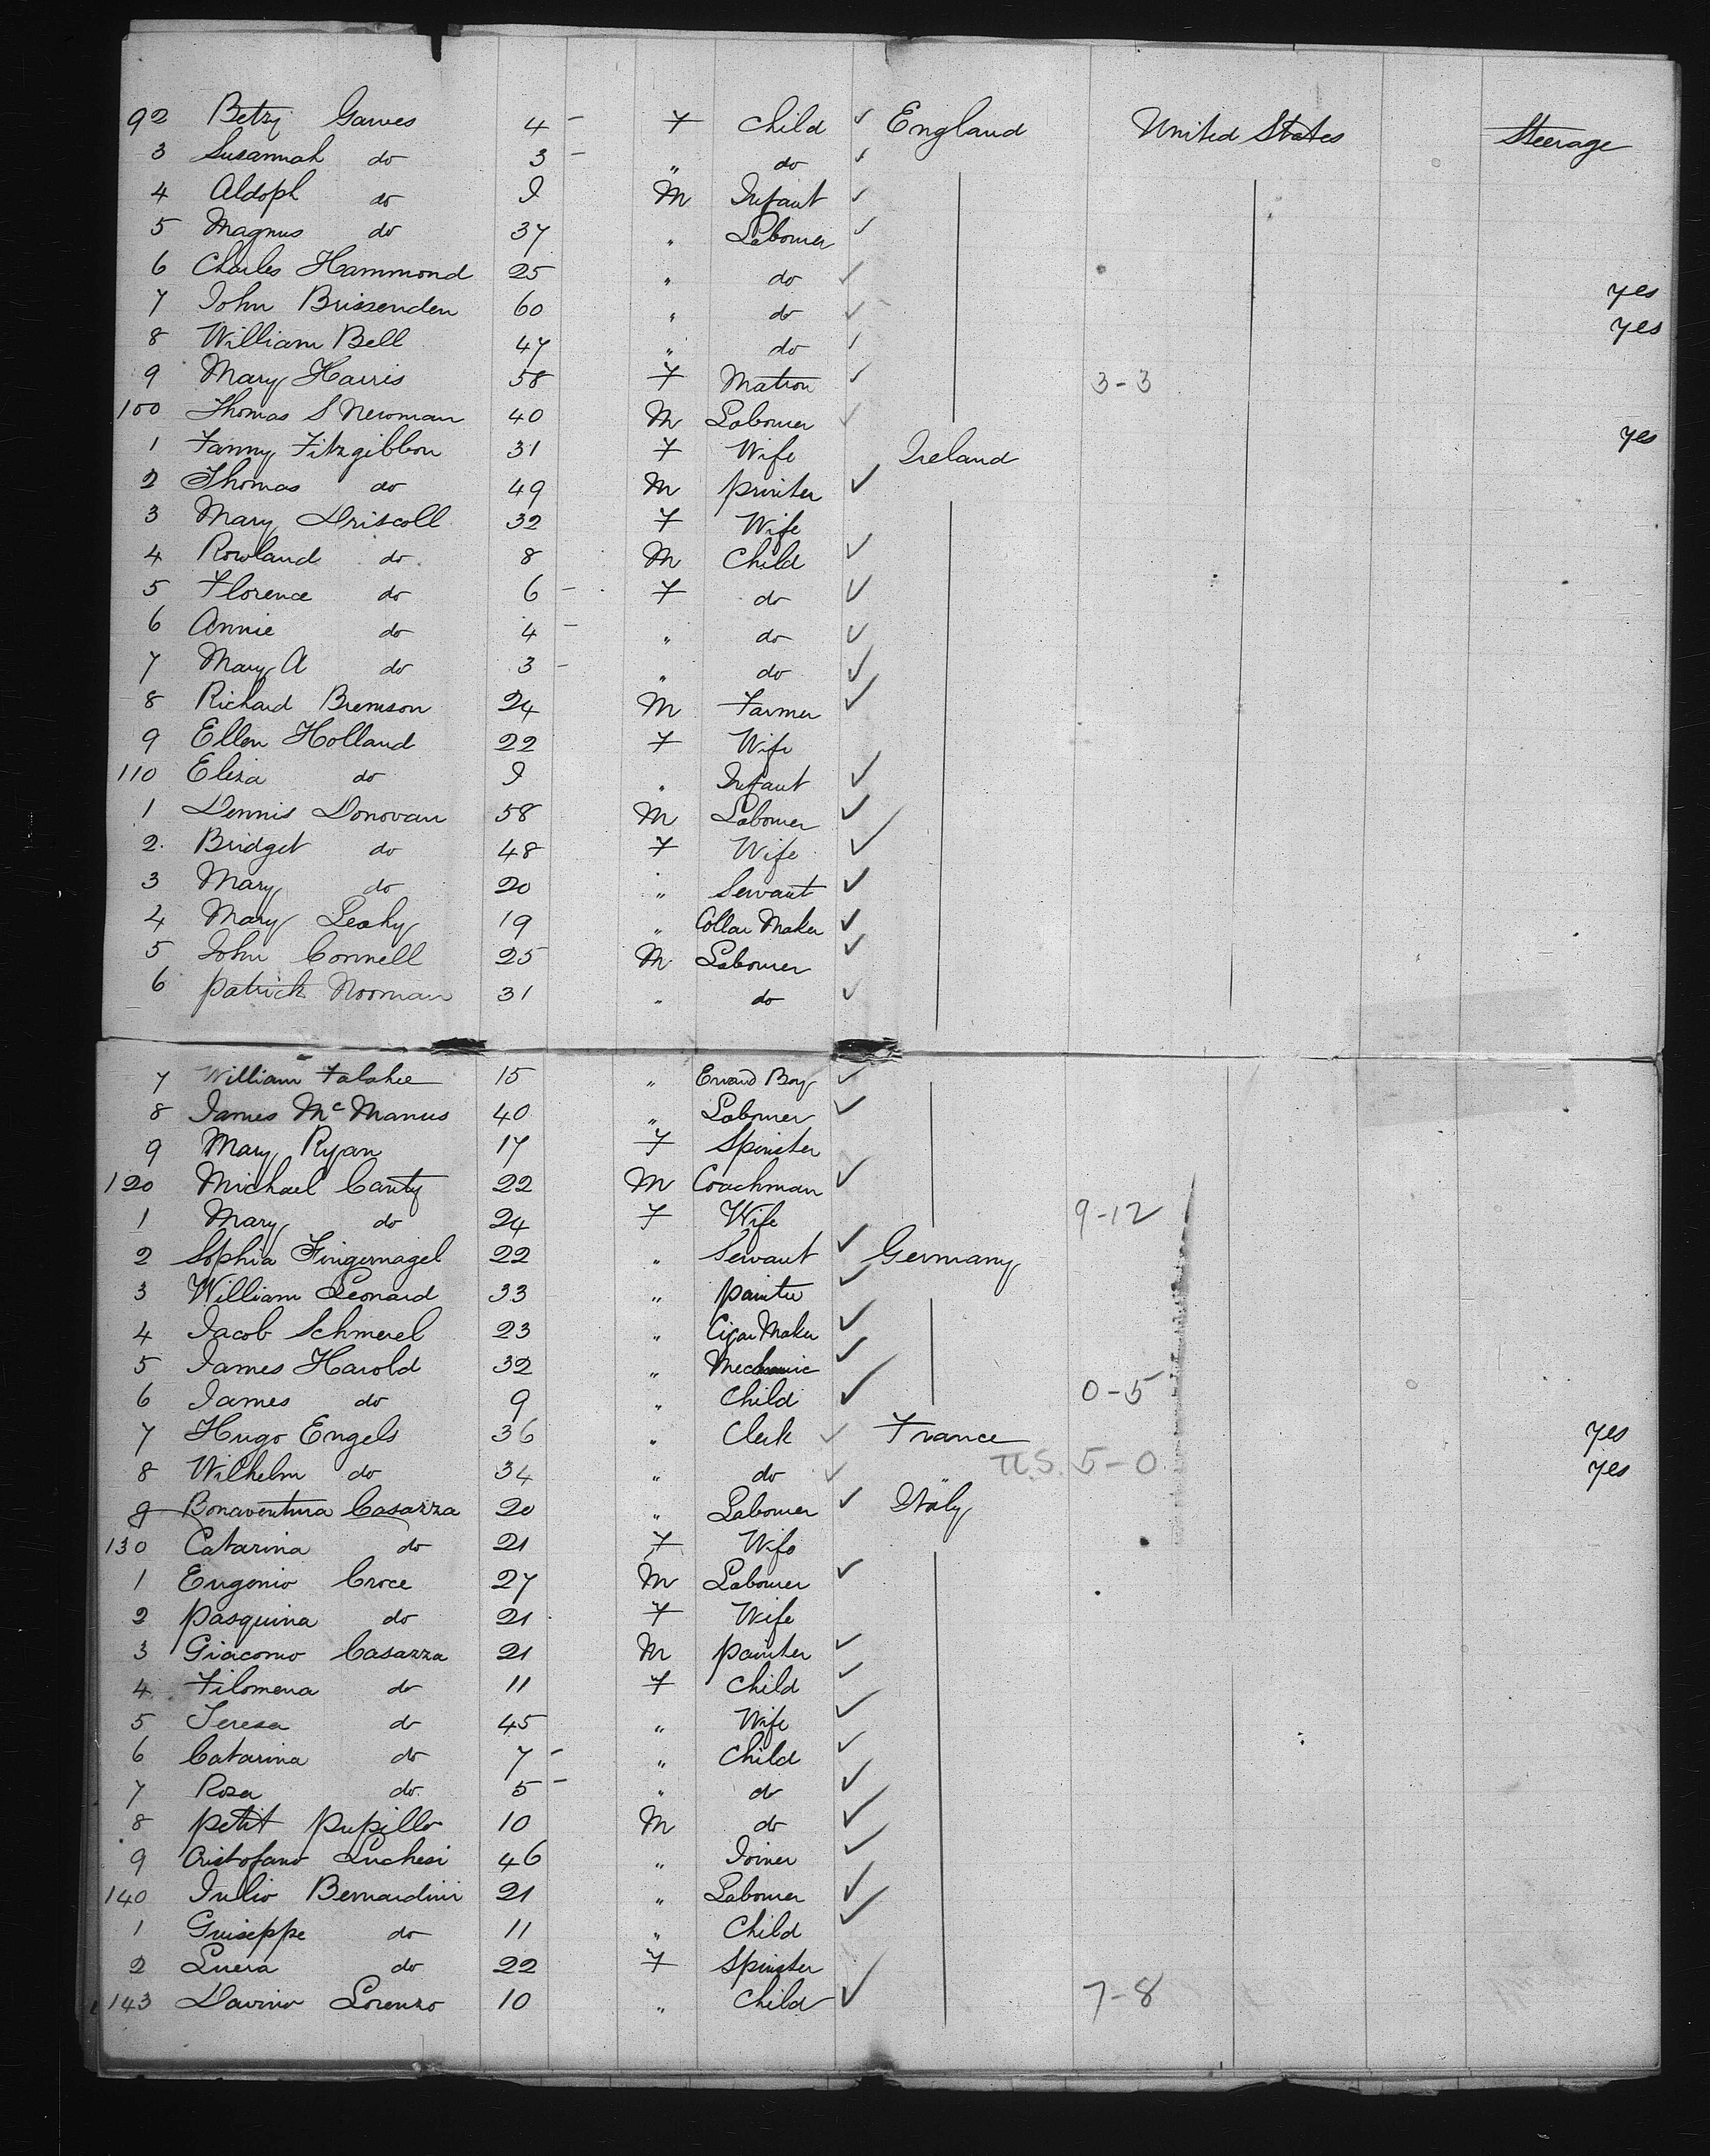 92 Betzy Garves 4 - F Child ✓ England United States Steerage
3 Susannah do 3 - " do ✓
4 Aldoph do I M Infant ✓
5 Magnus do 37 " Labourer ✓
6 Charles Hammond 25 " do ✓ yes
7 John Brissenden 60 " do ✓ yes
8 William Bell 47 " do ✓
9 Mary Harris 58 F Matron ✓ 3-3
100 Thomas S Newman 40 M Labourer ✓ yes
1 Fanny Fitzgibbon 31 F Wife Ireland
2 Thomas do 49 M printer ✓
3 Mary Driscoll 32 F Wife
4 Rowland do 8 M Child ✓
5 Florence do 6 - F do ✓
6 Annie do 4 - " do ✓
7 Mary A do 3 - " do ✓
8 Richard Bremson 24 M Farmer ✓
9 Ellen Holland 22 F Wife
110 Eliza do I " Infant ✓
1 Dennis Donovan 58 M Labourer ✓
2 Bridget do 48 F Wife ✓
3 Mary do 20 " Servant ✓
4 Mary Leahy 19 " Collar Maker ✓
5 John Connell 25 M Labourer ✓
6 patrick Noonan 31 " do ✓
7 William Falahee 15 " Errand Boy ✓
8 James McManus 40 " Labourer ✓
9 Mary Ryan 17 F Spinster
120 Michael Canty 22 M Coachman ✓
1 Mary do 24 F Wife 9-12
2 Sophia Fingernagel 22 " Servant ✓ Germany
3 William Leonard 33 " painter ✓
4 Jacob Schmerel 23 " Cigar Maker ✓
5 James Harold 32 " Mechanic ✓
6 James do 9 " Child ✓ 0-5
7 Hugo Engels 36 " Clerk ✓ France yes
8 Wilhelm do 34 " do ✓ U.S. 5-0 yes
9 Bonaventura Casazza 20 " Labourer ✓ Italy
130 Catarina do 21 F Wife
1 Eugenio Croce 27 M Labourer ✓
2 pasquina do 21 F Wife
3 Giacomo Casazza 21 M painter ✓
4 Filomena do 11 F Child ✓
5 Teresa do 45 " Wife ✓
6 Catarina do 7 - " Child ✓
7 Rosa do 5 - " do ✓
8 petit pupillo 10 M do ✓
9 Cristofano Luchesi 46 " Joiner ✓
140 Julio Bernardini 21 " Labourer ✓
1 Guiseppe do 11 " Child ✓
2 Lucia do 22 F Spinster
143 Davino Lorenzo 10 " Child ✓ 7-8